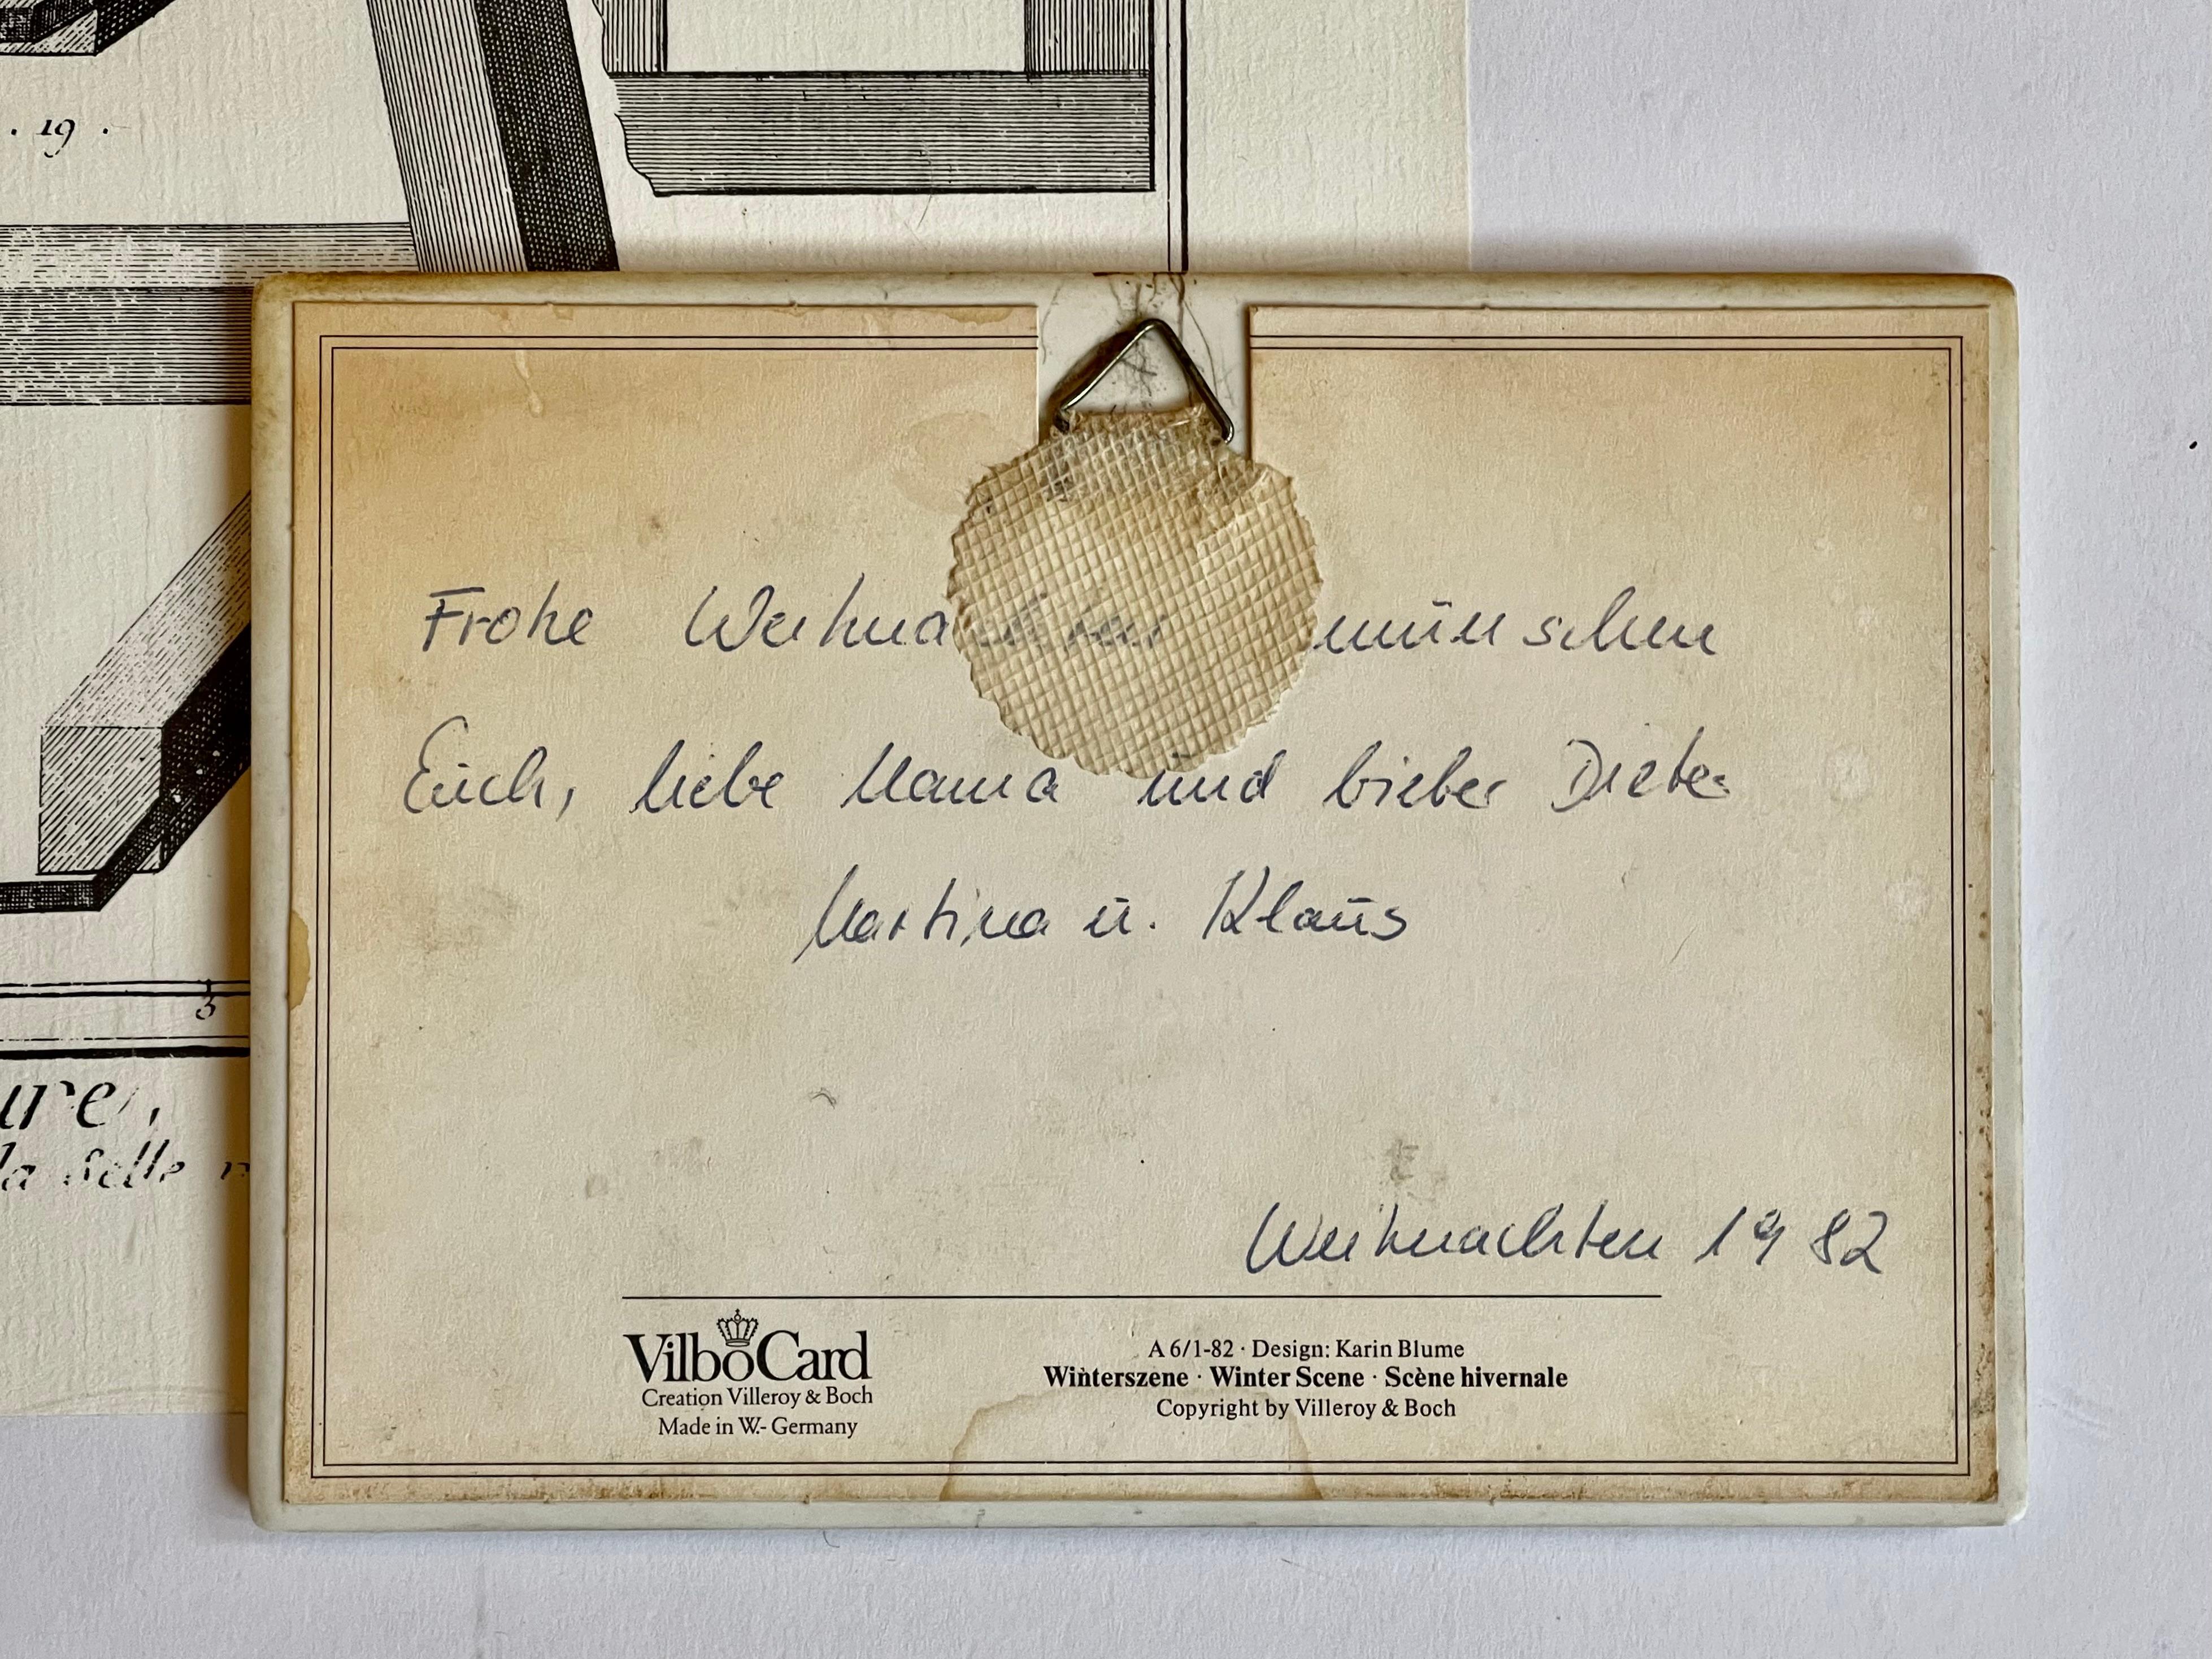 . 19 .
Frohe Weihnachten wünschen
Euch, liebe Mama und lieber Dieter
Martina u. Klaus
3
ure,
la Selle
Weihnachten 1982
VilboCard
Creation Villeroy & Boch
Made in W.- Germany
A 6/1-82 · Design: Karin Blume
Winterszene · Winter Scene · Scène hivernale
Copyright by Villeroy & Boch